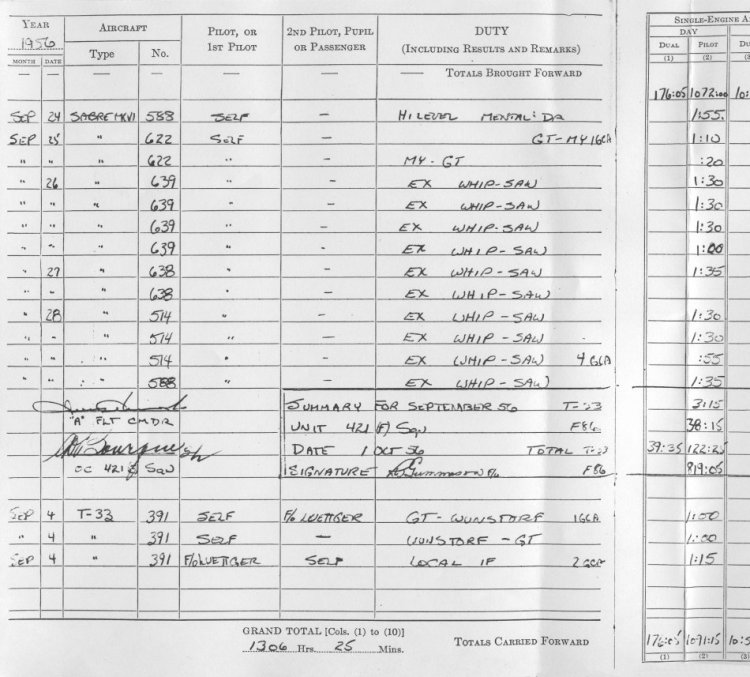 YEAR AIRCRAFT PILOT, OR 2ND PILOT, PUPIL DUTY SINGLE-ENGINE A
1956 1ST PILOT OR PASSENGER (INCLUDING RESULTS AND REMARKS) DAY
MONTH DATE Type No. DUAL PILOT DU
(1) (2) (3
— — — — — — — TOTALS BROUGHT FORWARD
176:05 1072:00 10:
SEP 24 SABRE MKVI 588 SELF — HI LEVEL 1:55
SEP 25 " 622 SELF — GT-MY 1GCA 1:10
" " " 622 " — MY-GT :20
" 26 " 639 " — EX WHIP-SAW 1:30
" " " 639 " — EX WHIP-SAW 1:30
" " " 639 " — EX WHIP-SAW 1:30
" " " 639 " — EX WHIP-SAW 1:00
" 27 " 638 " — EX WHIP-SAW 1:35
" " " 638 " — EX WHIP-SAW
" 28 " 514 " — EX WHIP-SAW 1:30
" " " 514 " — EX WHIP-SAW 1:30
" " " 514 " — EX WHIP-SAW 4 GCA :55
" " " 588 " — EX WHIP-SAW 1:35
SUMMARY FOR SEPTEMBER 56 T-33 3:15
"A" FLT CMDR UNIT 421 (F) Sqn F86 38:15
DATE 1 OCT 56 TOTAL T-33 39:35 122:25
OC 421 F SQN SIGNATURE F/O F86 819:05
SEP 4 T-33 391 SELF F/O LUETTGER GT-WUNSTORF 1GCA 1:00
" 4 " 391 SELF — WUNSTORF-GT 1:00
SEP 4 " 391 F/O LUETTGER SELF LOCAL IF 2 GCA 1:15
GRAND TOTAL [Cols. (1) to (10)]
1306 Hrs. 25 Mins. TOTALS CARRIED FORWARD 176:05 1091:15 10:5
(1) (2) (3